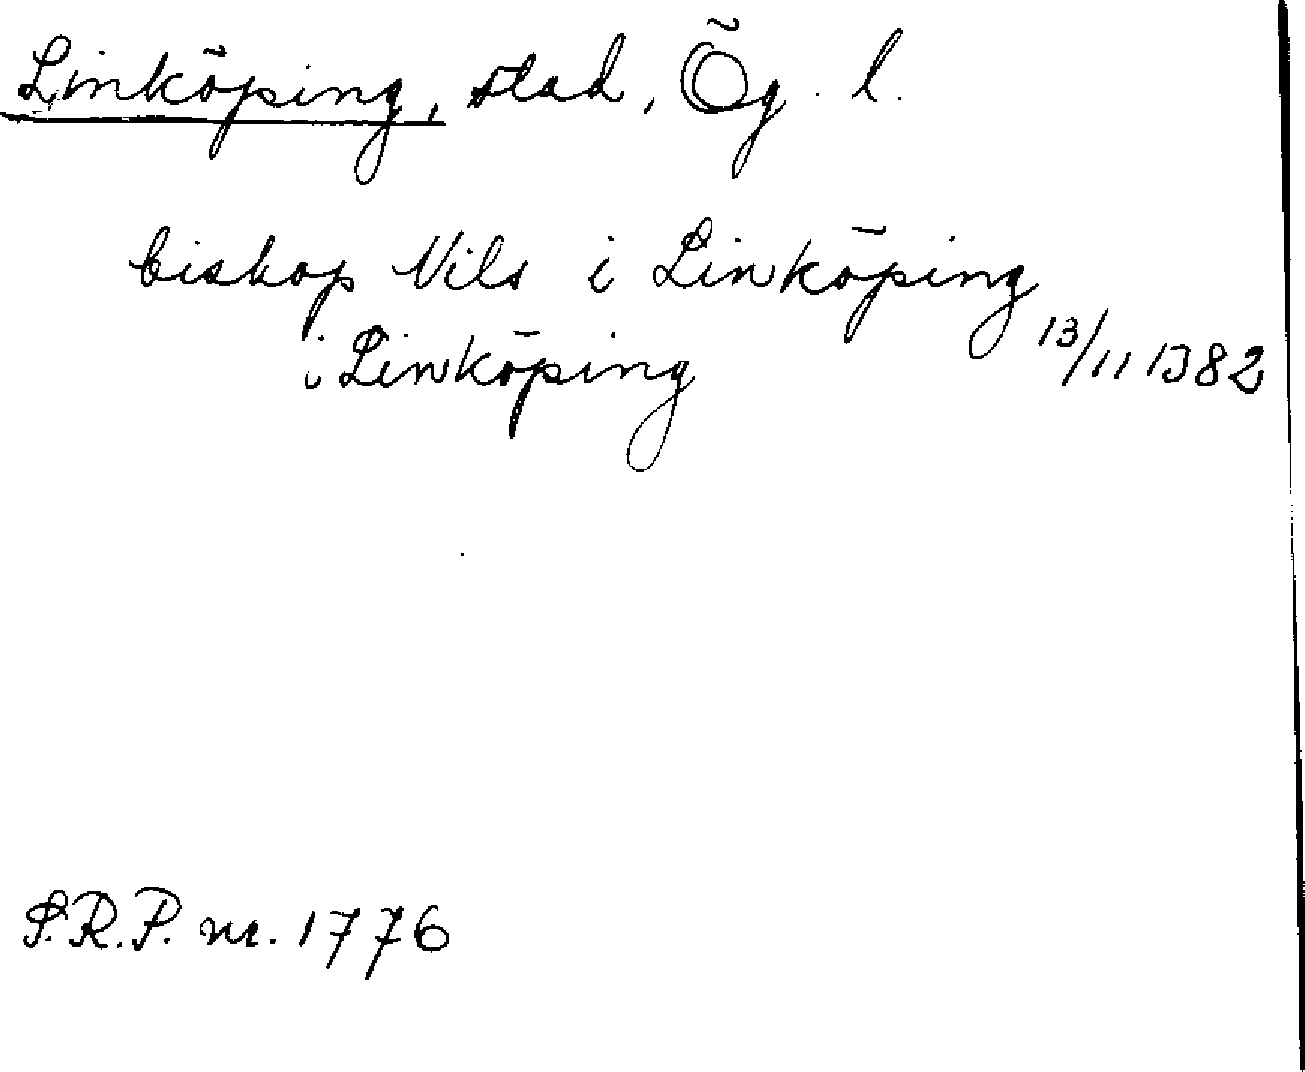 Linköping, stad, Ög. l.
biskop Nils i Linköping
i Linköping 13/11 1382
S.R.P. nr. 1776